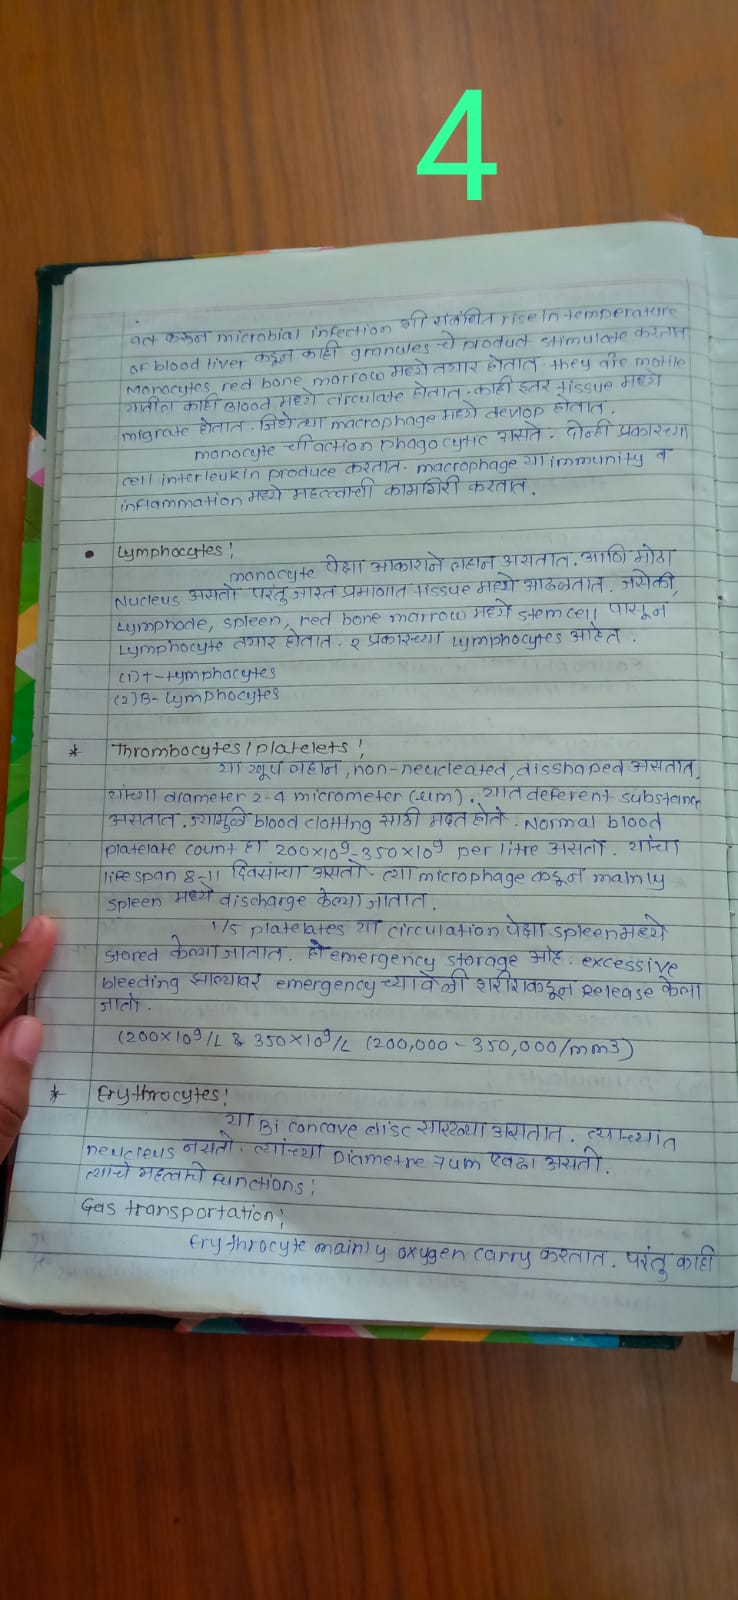 4
करून microbial infection शी संबंधित rise in temperature
of blood liver कडून काही granules चे product stimulate करतात
Monocytes red bone marrow मध्ये तयार होतात. They are motile
यातील काही Blood मध्ये circulate होतात. काही इतर tissue मध्ये
migrate होतात. जिथे त्या macrophage मध्ये devlop होतात.
monocyte ची action phagocytic असते. दोन्ही प्रकारच्या
cell interleukin produce करतात. macrophage या immunity व
inflammation मध्ये महत्त्वाची कामगिरी करतात.
• Lymphocytes!
monocyte पेक्षा आकाराने लहान असतात. आणि मोठा
Nucleus असतो परंतु जास्त प्रमाणात tissue मध्ये आढळतात. जसेकी,
Lymphode, spleen, red bone marrow मध्ये stem cell पासून
Lymphocyte तयार होतात. २ प्रकारच्या Lymphocytes आहेत.
(1) T-Lymphocytes
(2) B- Lymphocytes
* Thrombocytes/platelets!
या खूप लहान, non-neucleated, disshaped असतात,
यांच्या diameter 2-4 micrometer (um). यात deferent substance
असतात. ज्यामुळे blood clotting साठी मदत होते. Normal blood
platelate count हा 200×10⁹-350×10⁹ per litre असतो. यांचा
life span 8-11 दिवसांचा असतो. त्या microphage कडून mainly
spleen मध्ये discharge केल्या जातात.
1/5 platelates या circulation पेक्षा spleen मध्ये
stored केल्या जातात. हे emergency storage आहे. excessive
bleeding झाल्यावर emergency च्या वेळी शरीराकडून Release केला
जातो.
(200×10⁹/L & 350×10⁹/L (200,000 - 350,000/mm3)
* Erythrocytes!
या Bi concave disc सारख्या असतात. त्याच्यात
neucleus नसतो. त्यांच्या Diametre 7um एवढा असतो.
त्याचे महत्वाचे Functions!
Gas transportation!
Erythrocyte mainly oxygen carry करतात. परंतु काही